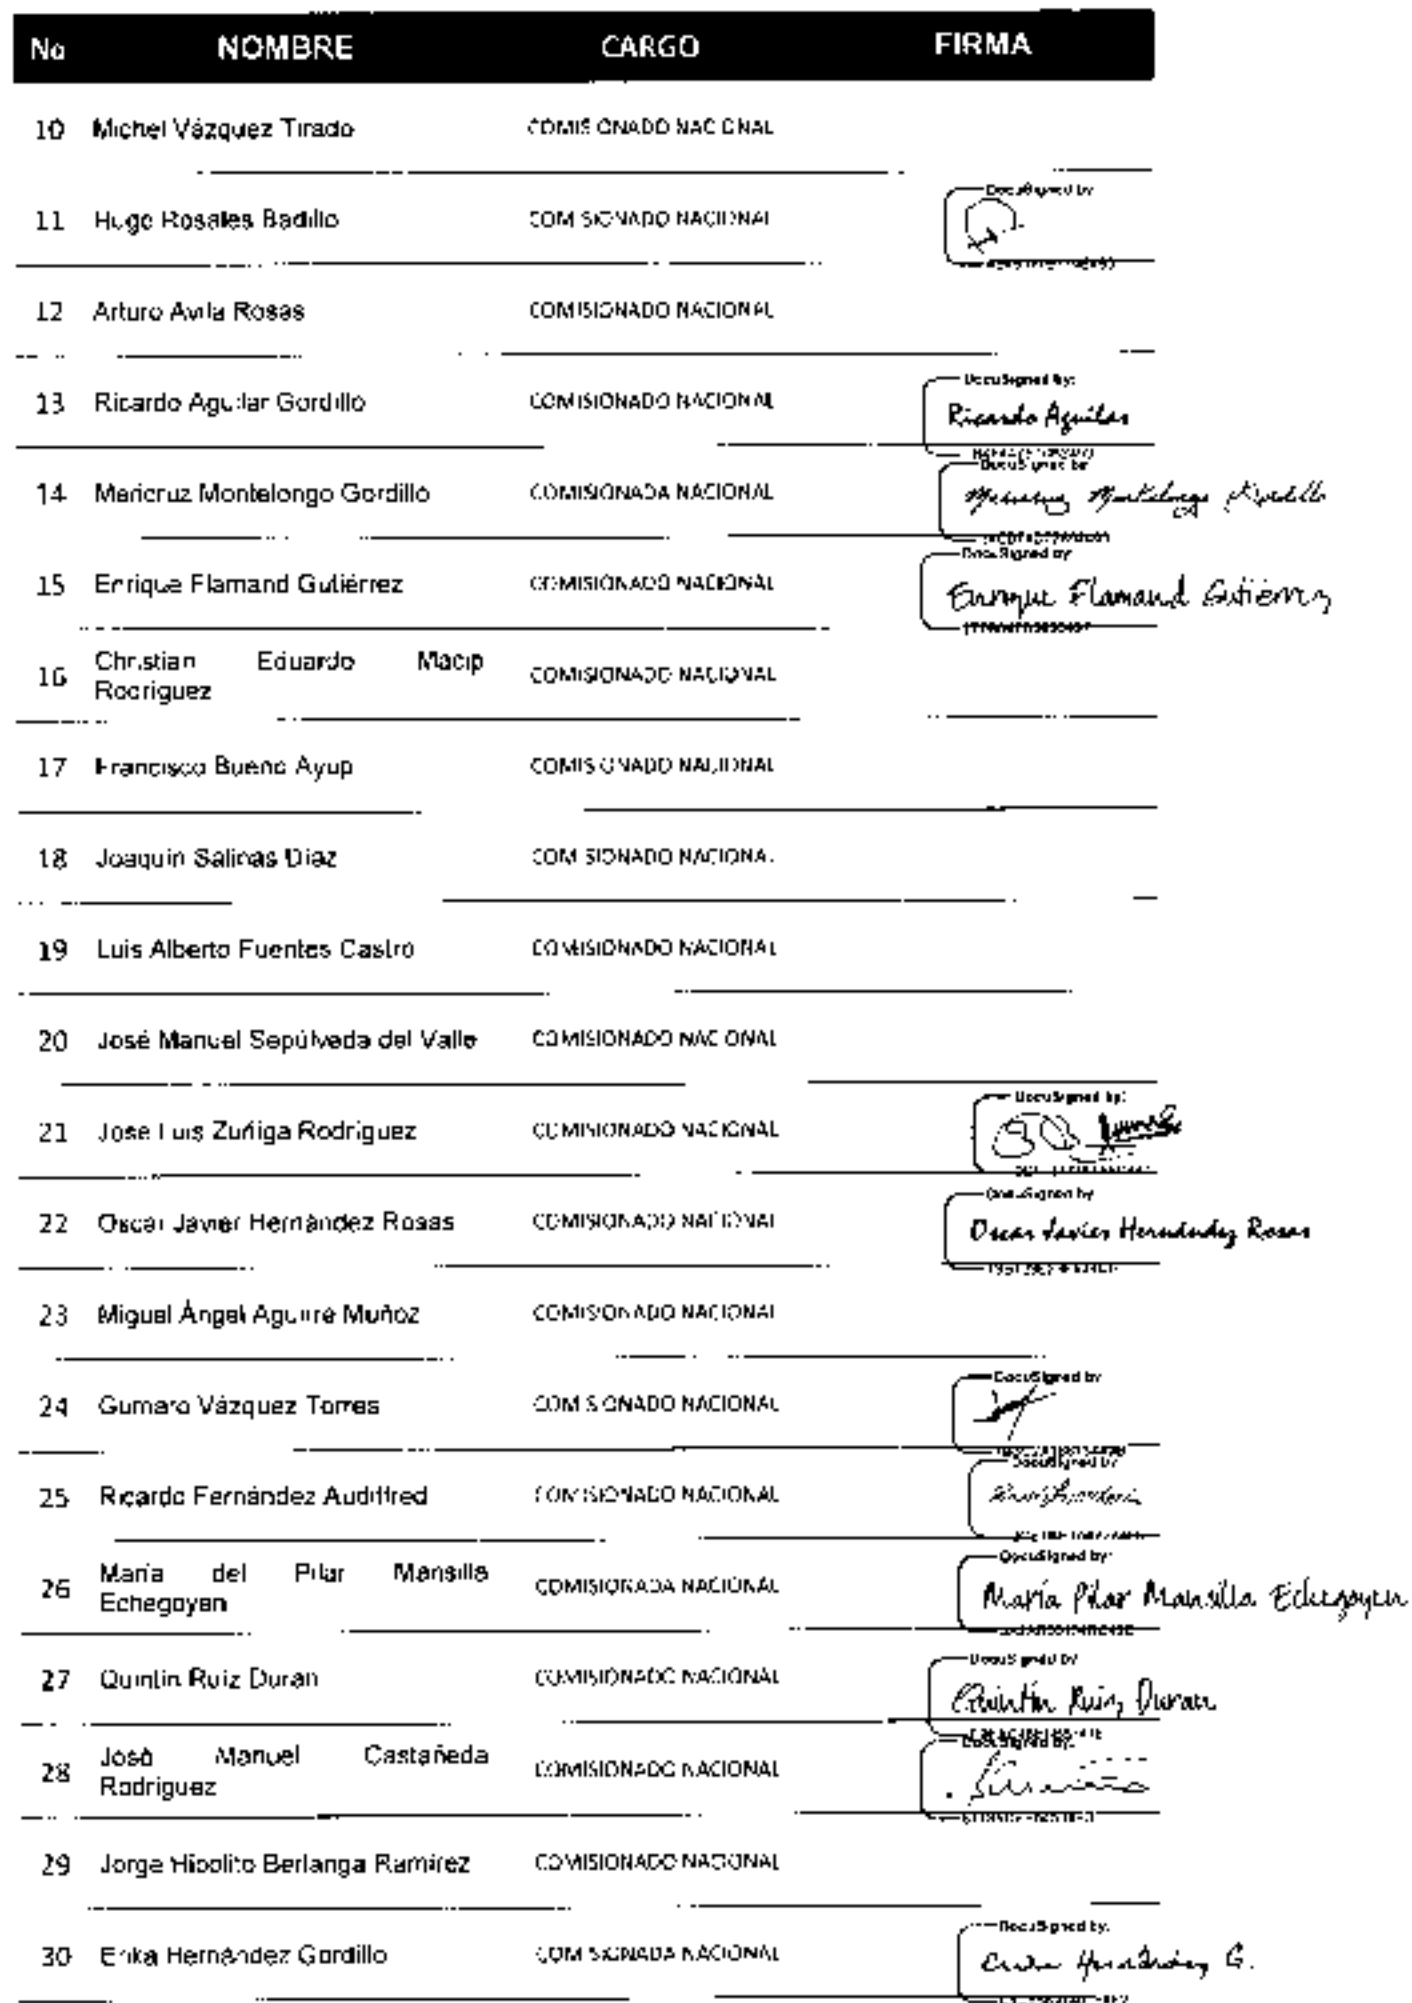 No NOMBRE CARGO FIRMA
10 Michel Vázquez Tirado COMISIONADO NACIONAL
DocuSigned by
11 Hugo Rosales Badillo COMISIONADO NACIONAL
12 Arturo Avila Rosas COMISIONADO NACIONAL
DocuSigned by:
13 Ricardo Aguilar Gordillo COMISIONADO NACIONAL Ricardo Aguilar
DocuSigned by
14 Maricruz Montelongo Gordillo COMISIONADA NACIONAL Maricruz Montelongo Gordillo
DocuSigned by
15 Enrique Flamand Gutiérrez COMISIONADO NACIONAL Enrique Flamand Gutierrez
16 Christian Eduardo Macip
Rodriguez COMISIONADO NACIONAL
17 Francisco Bueno Ayup COMISIONADO NACIONAL
18 Joaquin Salinas Diaz COMISIONADO NACIONAL
19 Luis Alberto Fuentes Castro COMISIONADO NACIONAL
20 José Manuel Sepúlveda del Valle COMISIONADO NACIONAL
DocuSigned by:
21 Jose Luis Zuñiga Rodriguez COMISIONADO NACIONAL
DocuSigned by
22 Oscar Javier Hernández Rosas COMISIONADO NACIONAL Oscar Javier Hernández Rosas
23 Miguel Ángel Aguirre Muñoz COMISIONADO NACIONAL
DocuSigned by
24 Gumaro Vázquez Torres COMISIONADO NACIONAL
DocuSigned by
25 Ricardo Fernández Audiffred COMISIONADO NACIONAL
DocuSigned by:
26 Maria del Pilar Mansilla
Echegoyen COMISIONADA NACIONAL María Pilar Mansilla Echegoyen
DocuSigned by
27 Quintin Ruiz Duran COMISIONADO NACIONAL Quintin Ruiz Duran
DocuSigned by:
28 José Manuel Castañeda
Rodriguez COMISIONADO NACIONAL
29 Jorge Hipolito Berlanga Ramirez COMISIONADO NACIONAL
DocuSigned by:
30 Erika Hernández Gordillo COMISIONADA NACIONAL Erika Hernández G.